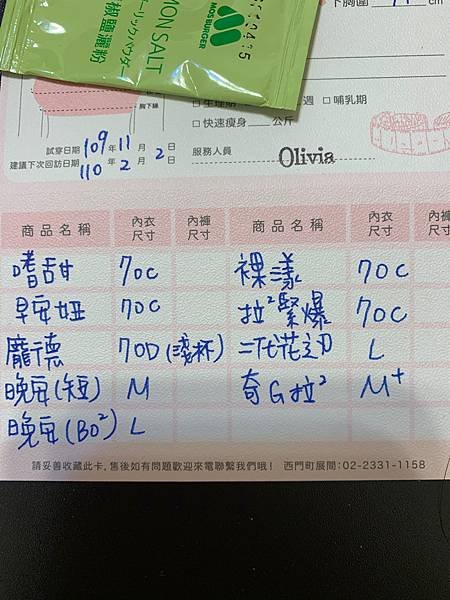 MOS BURGER
MON SALT
ーリックパウダー
椒鹽灑粉
下胸圍 cm
胸下緣
週 □ 哺乳期
□ 快速瘦身 公斤
試穿日期 109 年 11 月 2 日
建議下次回訪日期 110 年 2 月 日
服務人員 Olivia
商品名稱 內衣尺寸 內褲尺寸 商品名稱 內衣尺寸 內褲尺寸
嗜甜 70C 裸漾 70C
早安妞 70C 拉²緊爆 70C
龐德 70D (淺杯) 二代花刃 L
晚安(短) M 奇G拉² M⁺
晚安(BO²) L
請妥善收藏此卡，售後如有問題歡迎來電聯繫我們哦！ 西門町展間：02-2331-1158